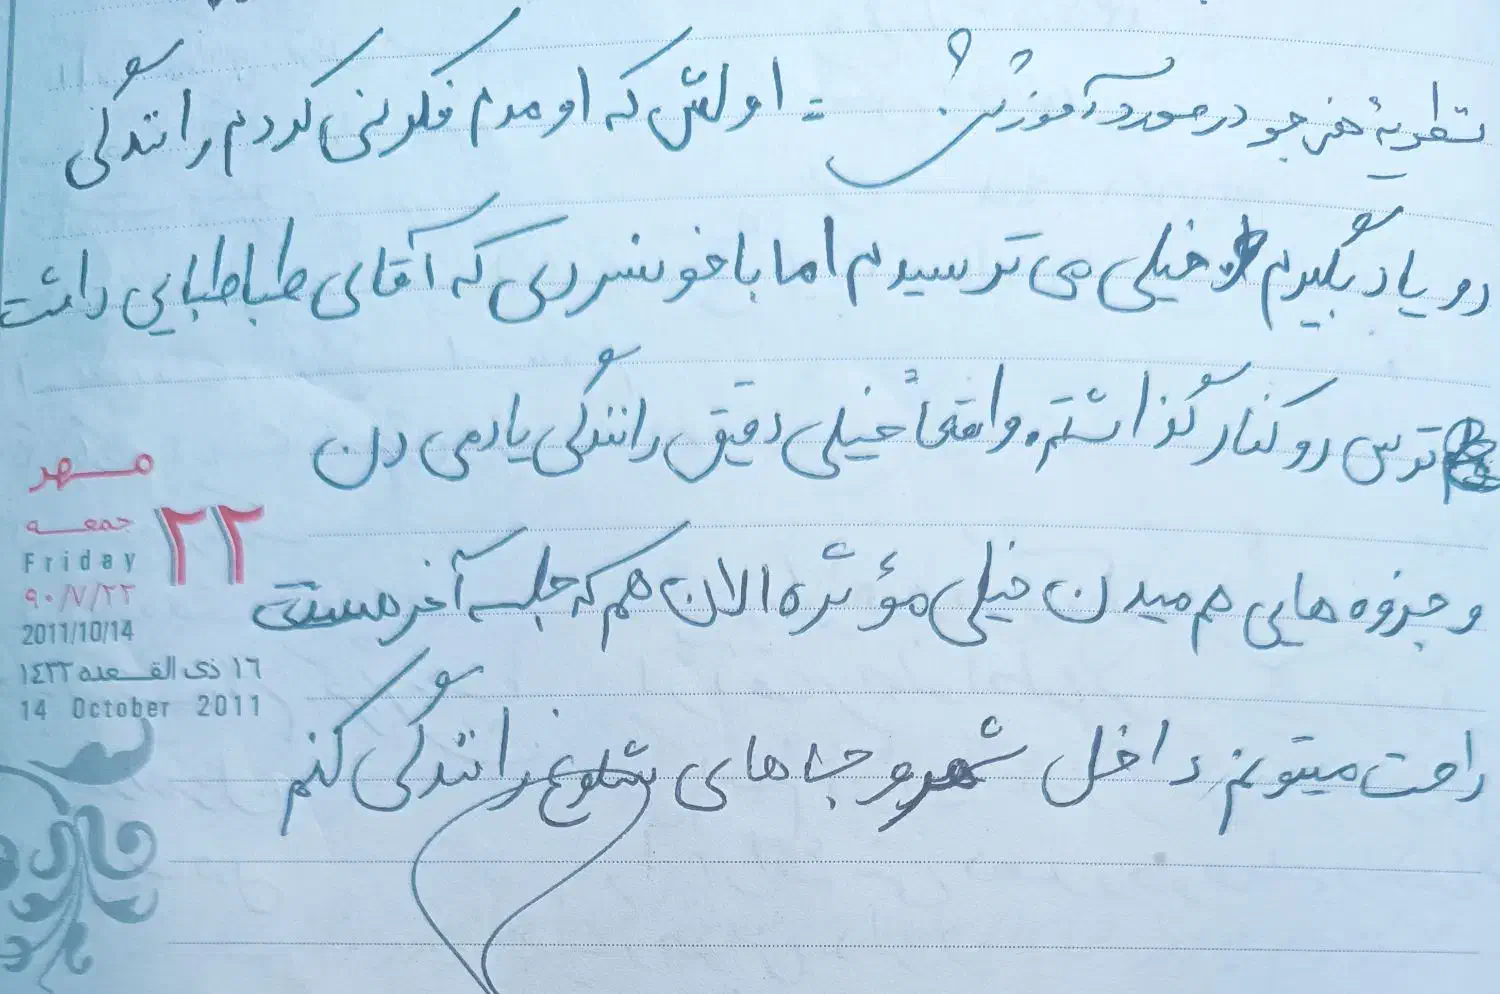 نظریهٔ هنرجو در مورد آموزش = اولش که اومدم فکر نمی کردم رانندگی
رو یاد بگیرم خیلی می ترسیدم اما با خونسردی که آقای طباطبایی داشت
ترس رو کنار گذاشتم. واقعاً خیلی دقیق رانندگی یاد می دن
و جزوه هایی هم میدن خیلی مؤثره الان هم که جلسه آخر هستش
راحت میتونم داخل شهر و جاهای شلوغ رانندگی کنم
مهر
جمعه
۲۲
Friday
۹۰/۷/۲۲
2011/10/14
١٦ ذی القعدة ١٤٣٢
14 October 2011